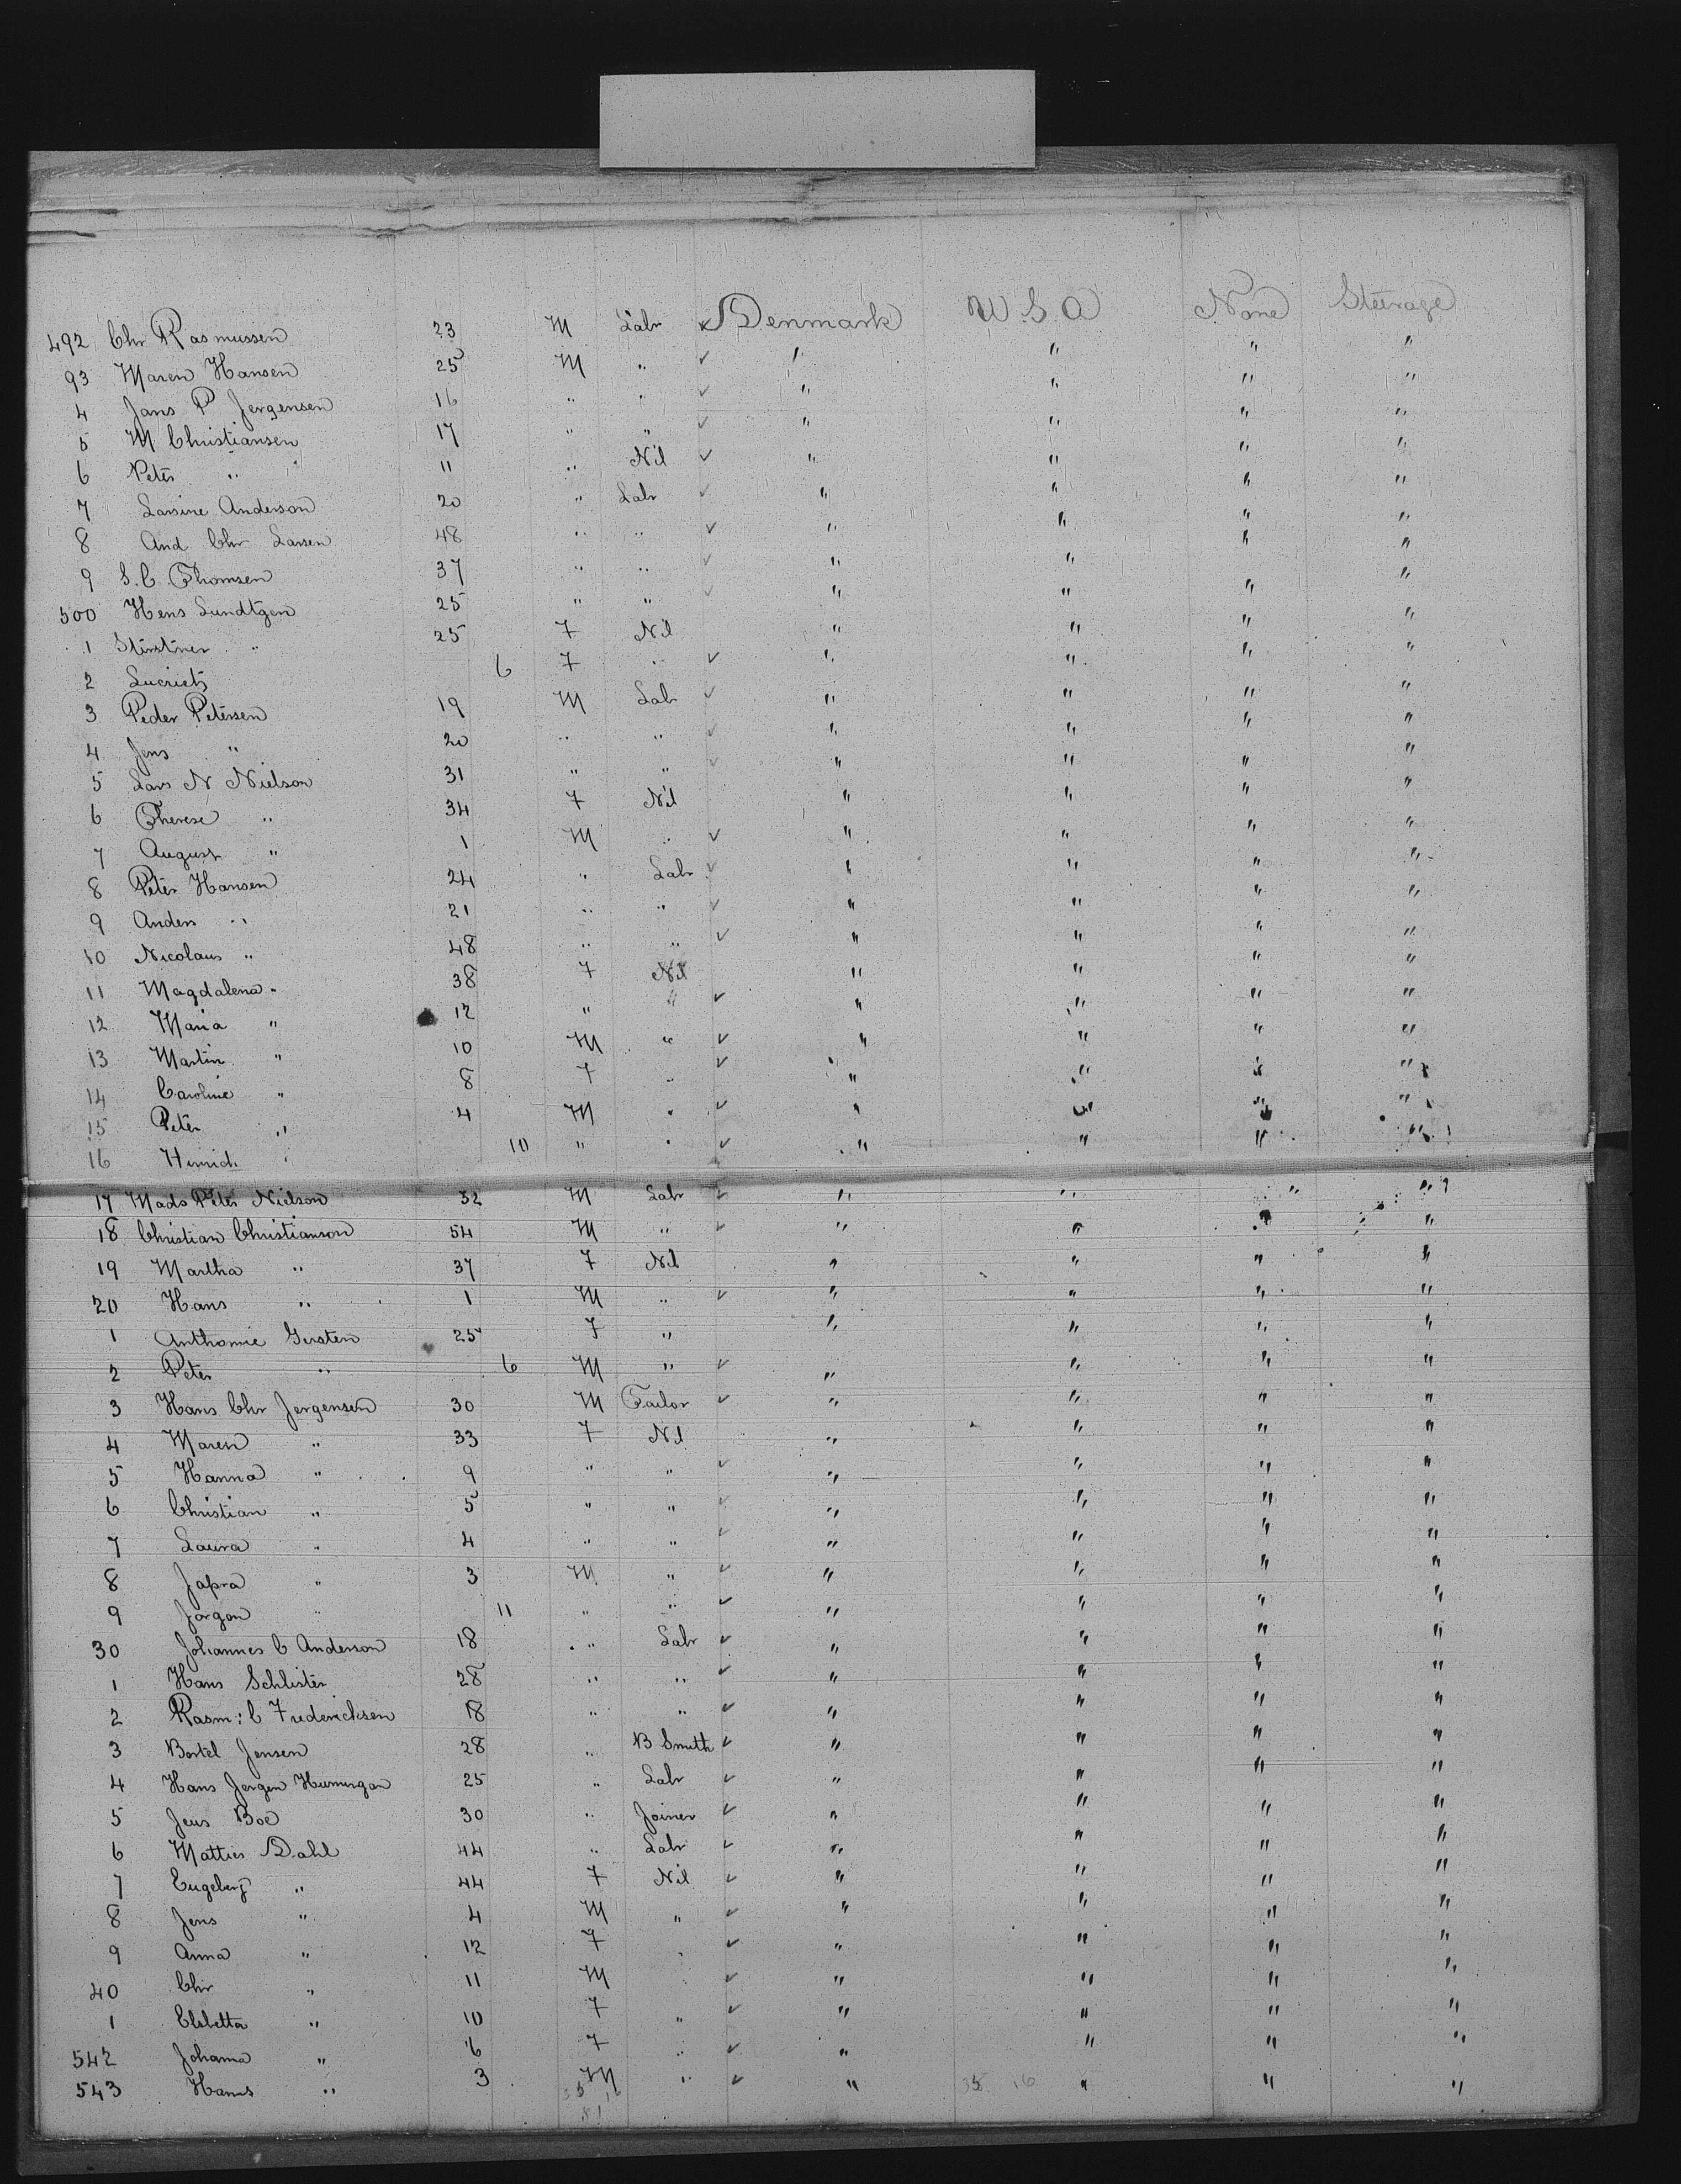 492 Chr Rasmussen 23 M Labr ✓ Denmark U.S.A None Steerage
93 Maren Hansen 25 M " ✓ " " " "
4 Jans P Jergensen 16 " " ✓ " " " "
5 M Christiansen 17 " " ✓ " " " "
6 Peter " 11 " Nil ✓ " " " "
7 Larsine Anderson 20 " Labr ✓ " " " "
8 And Chr Larsen 48 " " ✓ " " " "
9 S.C. Thomsen 37 " " ✓ " " " "
500 Hens Lundtgen 25 " " ✓ " " " "
1 " 25 F Nil " " " "
2 6 F " ✓ " " " "
3 Peder Petersen 19 M Labr ✓ " " " "
4 Jens " 20 " " ✓ " " " "
5 Lars N Nielson 31 " " ✓ " " " "
6 Therese " 34 F Nil " " " "
7 August " 1 M " ✓ " " " "
8 Peter Hansen 24 " Labr ✓ " " " "
9 Anders " 21 " " ✓ " " " "
10 Nicolaus " 48 " " ✓ " " " "
11 Magdalena " 38 F Nil " " " "
12 Maria " 12 " " ✓ " " " "
13 Martin " 10 M " ✓ " " " "
14 Caroline " 8 F " ✓ " " " "
15 Peter " 4 M " ✓ " " " "
16 Hinrich " 10 " " ✓ " " " "
17 Mads Peter Nielson 32 M Labr ✓ " " " "
18 Christian Christianson 54 M " ✓ " " " "
19 Martha " 37 F Nil " " " "
20 Hans " 1 M " ✓ " " " "
1 Anthomie Gersten 25 F " " " " "
2 Peter " 6 M " ✓ " " " "
3 Hans Chr Jergensen 30 M Tailor ✓ " " " "
4 Maren " 33 F Nil " " " "
5 Hanna " 9 " " ✓ " " " "
6 Christian " 5 " " ✓ " " " "
7 Laura " 4 " " ✓ " " " "
8 Japra " 3 M " ✓ " " " "
9 Jorgen " 11 " " ✓ " " " "
30 Johannes C Anderson 18 " Labr ✓ " " " "
1 Hans Schlister 28 " " ✓ " " " "
2 Rasm: C Fredericksen 18 " " ✓ " " " "
3 Bertel Jensen 28 " B Smith ✓ " " " "
4 Hans Jergen 25 " Labr ✓ " " " "
5 Jens Boe 30 " Joiner ✓ " " " "
6 Matties Dahl 44 " Labr ✓ " " " "
7 Engeberg " 44 F Nil ✓ " " " "
8 Jens " 4 M " ✓ " " " "
9 Anna " 12 F " ✓ " " " "
40 Chr " 11 M ✓ " " " "
1 Elsbetta " 10 F " ✓ " " " "
542 Johanna " 6 F " ✓ " " " "
543 Hanns " 3 M " ✓ " " " "
35 16 35 16
81